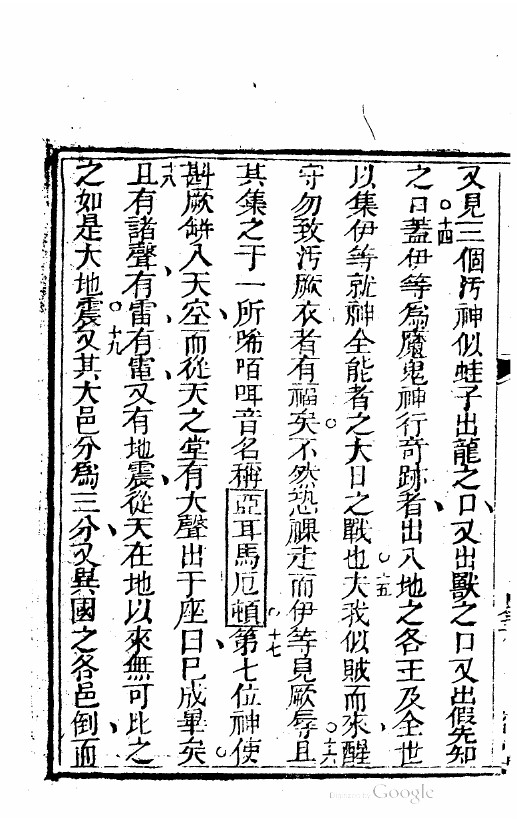 又見三個汚神似蛙子出龍之口、又出獸之口又出假先知
之口。十四蓋伊等為魔鬼神行奇跡者、出入地之各王及全世、
以集伊等就神全能者之大日之戰也。十五夫我似賊而來、醒
守勿致汚厥衣者有福矣。不然恐裸走而伊等見厥辱。十六且
其集之于一所、唏陌咡音名稱亞耳馬厄頓。十七第七位神使
斟厥缾入天空、而從天之堂有大聲出于座曰、已成畢矣。
十八且有諸聲、有雷有電、又有地震、從天在地以來無可比之
之如是大地震。十九又其大邑分為三分、又異國之各邑倒、而
Digitized by Google